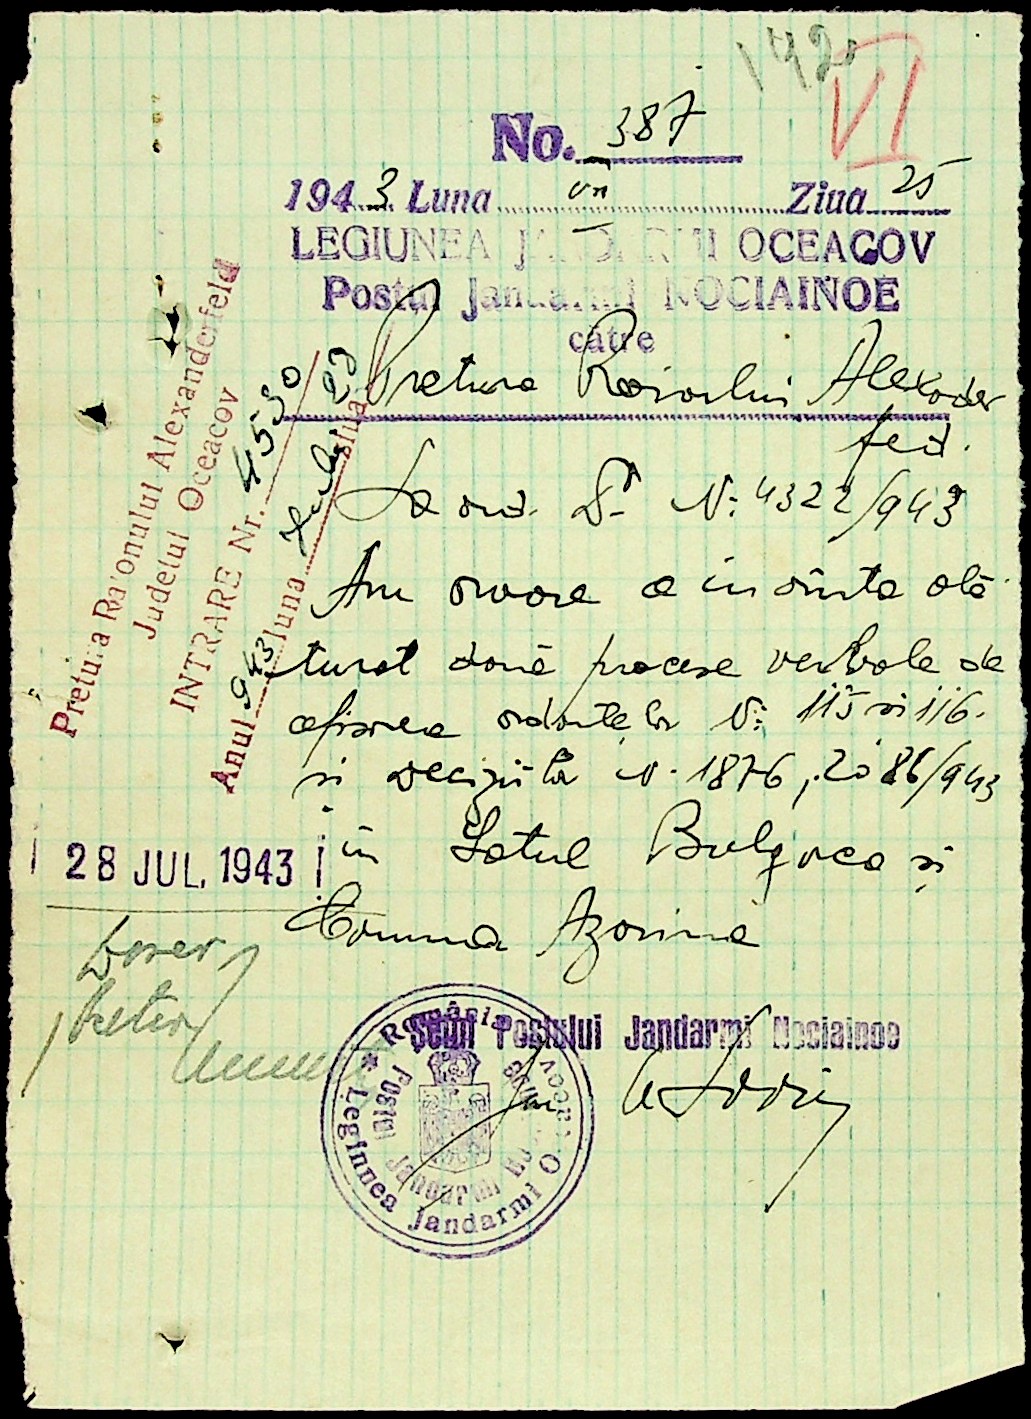 142
VI
No. 387
1943 Luna VII Ziua 25
LEGIUNEA JANDARMI OCEACOV
Postul Jandarmi NOCIAINOE
către
Pretura Raionului Alexander
fed.
La ord. Dv. N: 4322/943
Am onoare a înainta ală
turat două procese verbale de
afișarea ordonțelor N: 115 si 116.
si deciziilor N. 1876, 2086/943
în Satul Bulgarca și
Comuna Agorina
Pretura Raionului Alexanderfeld
Judetul Oceacov
INTRARE Nr. 4530
Anul 943 luna Iulie ziua 28
28 JUL. 1943
Dosar
Pretor
Șeful Postului Jandarmi Nociainoe
România
Legiunea Jandarmi Oceacov
Postul Jandarmi